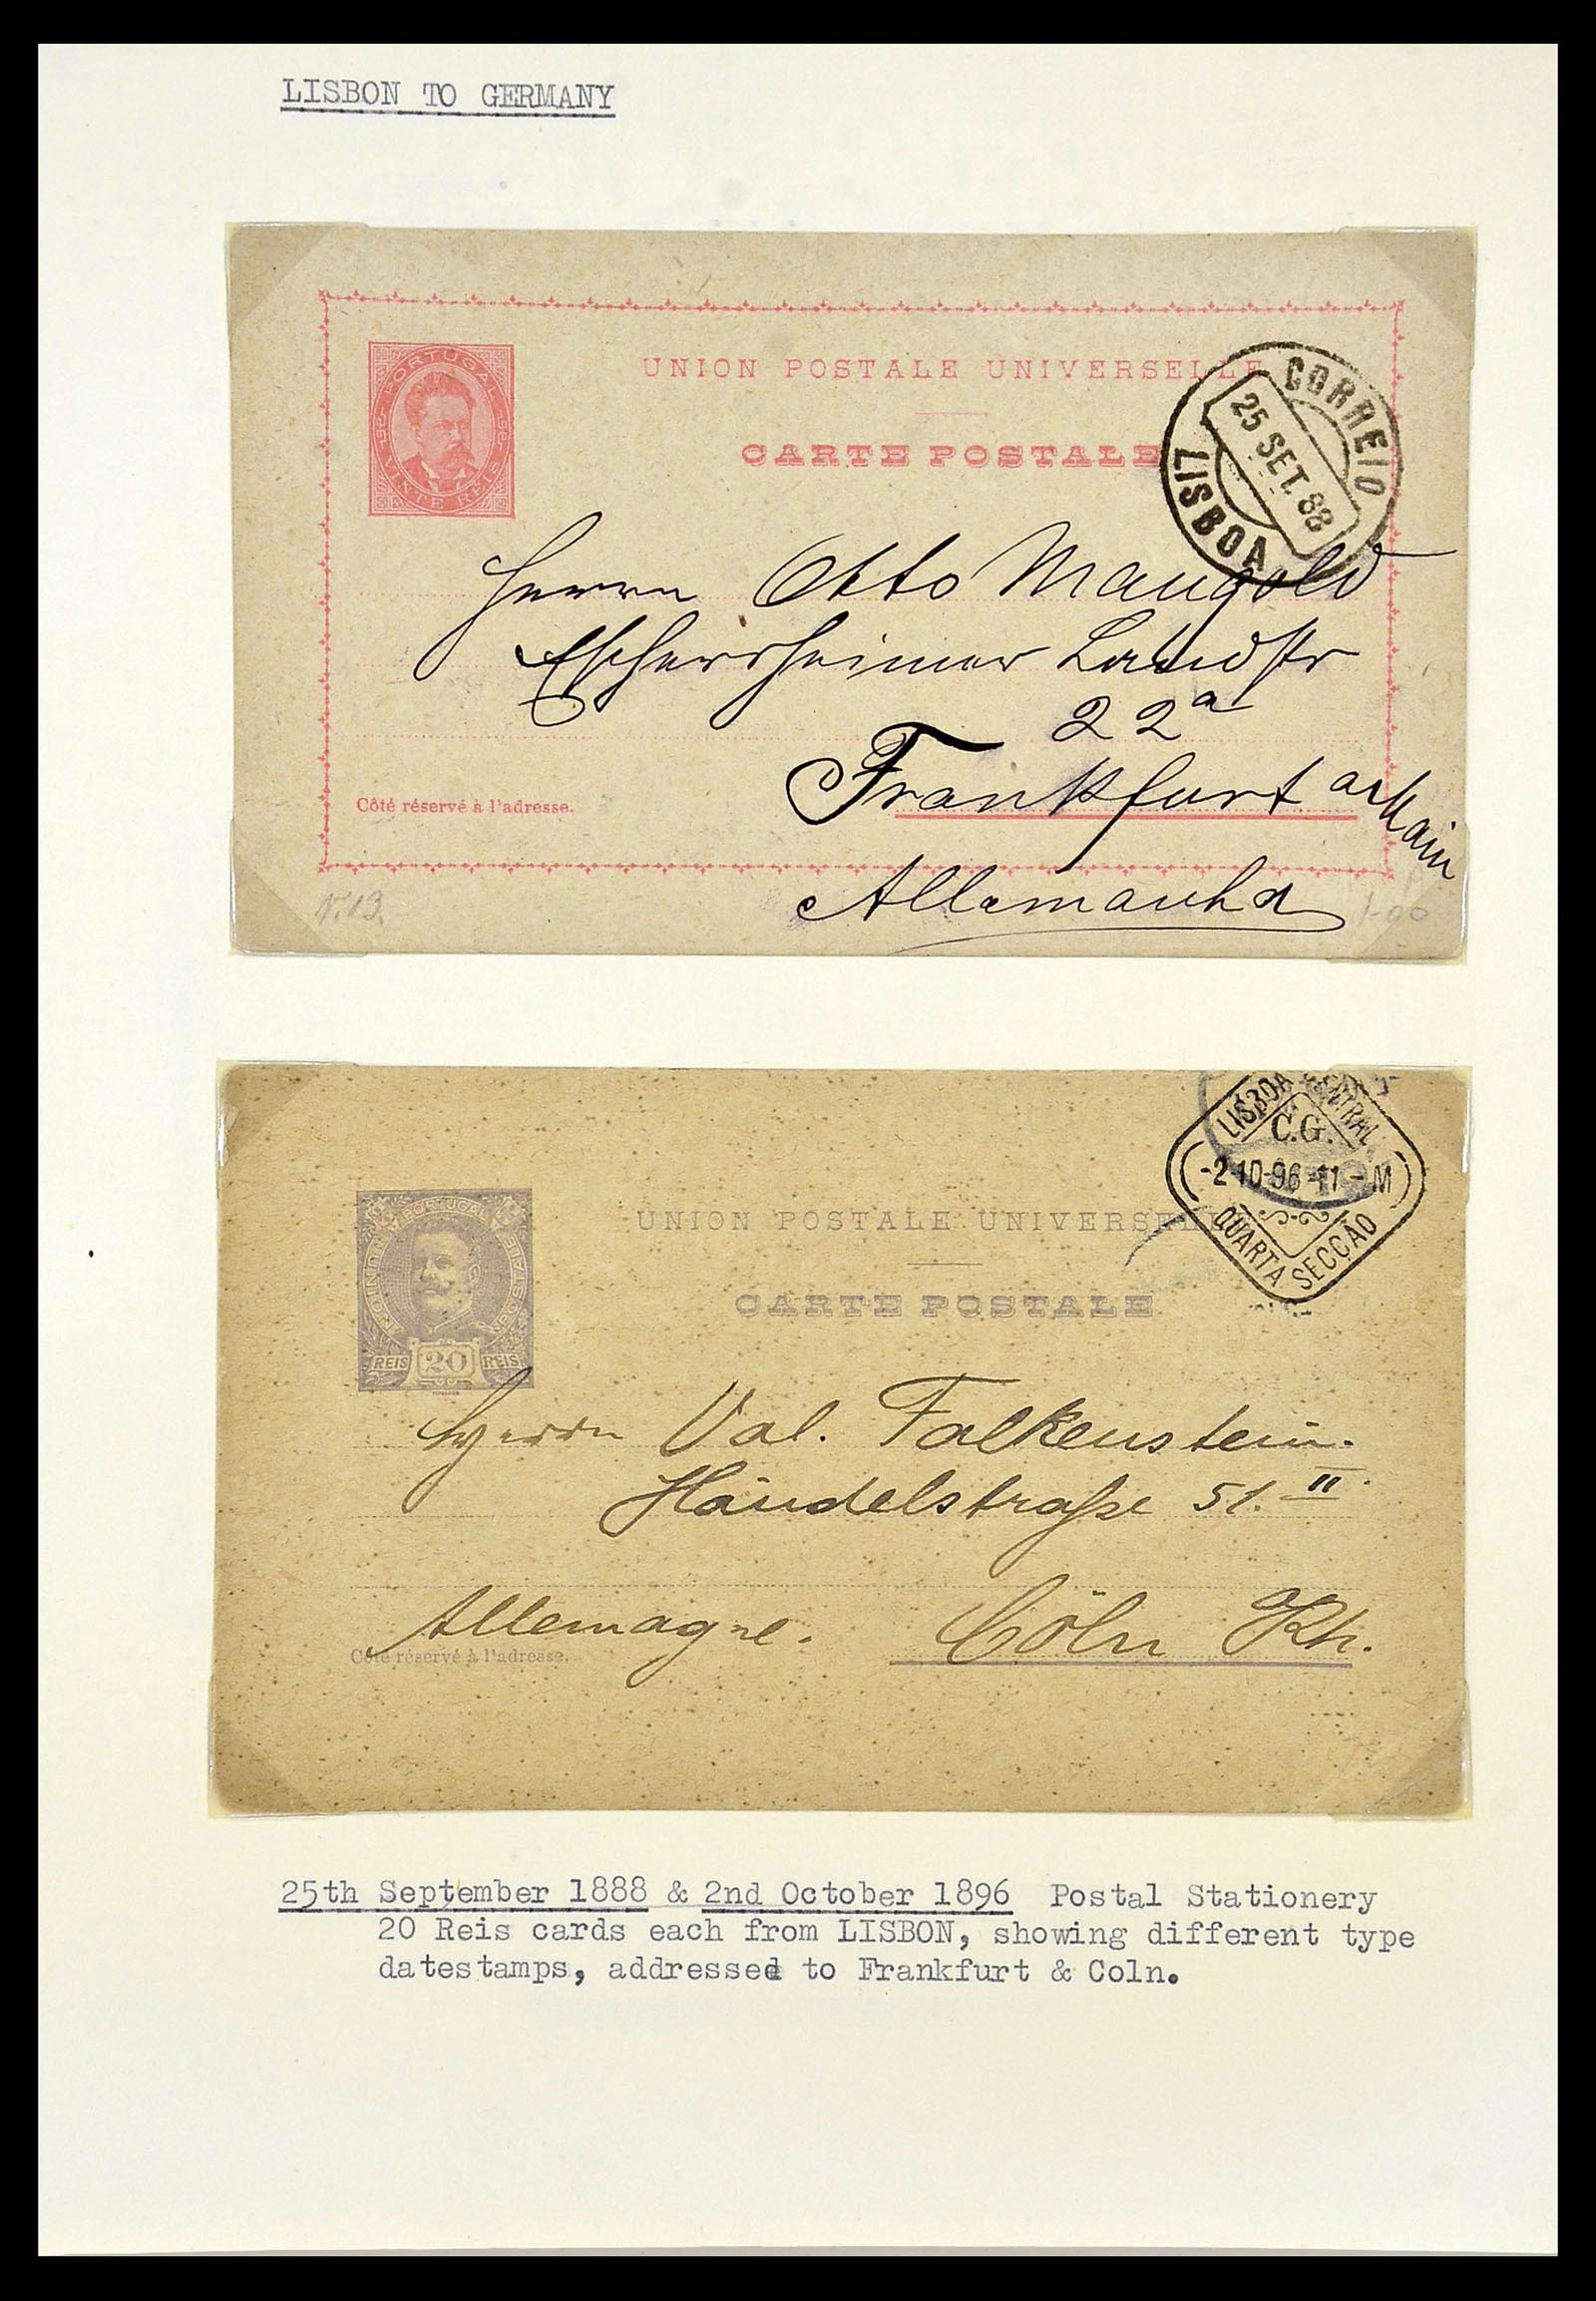 LISBON TO GERMANY
PORTUGAL
VINTE REIS
UNION POSTALE UNIVERSELLE
CARTE POSTALE
CORREIO
25 SET. 88
LISBOA
Herrn Otto Mangold
Eschersheimer Landstr
22a
Frankfurt a/Main
Côté réservé à l'adresse.
Allemanha
N. 13.
1-00
LISBOA CENTRAL
C.G.
-2-10-96-11-M
QUARTA SECÇÃO
PORTUGAL
REIS 20 REIS
UNION POSTALE UNIVERSELLE
CARTE POSTALE
Herrn Val. Falkenstein.
Händelstraße 51. II.
Allemagne. Cöln Rh.
Côté réservé à l'adresse.
25th September 1888 & 2nd October 1896 Postal Stationery
20 Reis cards each from LISBON, showing different type
datestamps, addressed to Frankfurt & Coln.